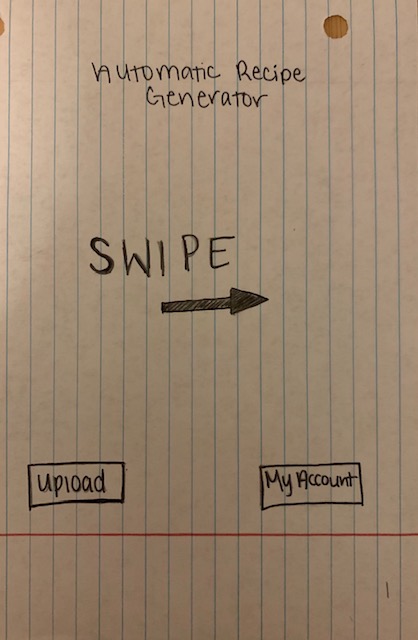 Automatic Recipe
Generator
SWIPE
Upload
My Account
1